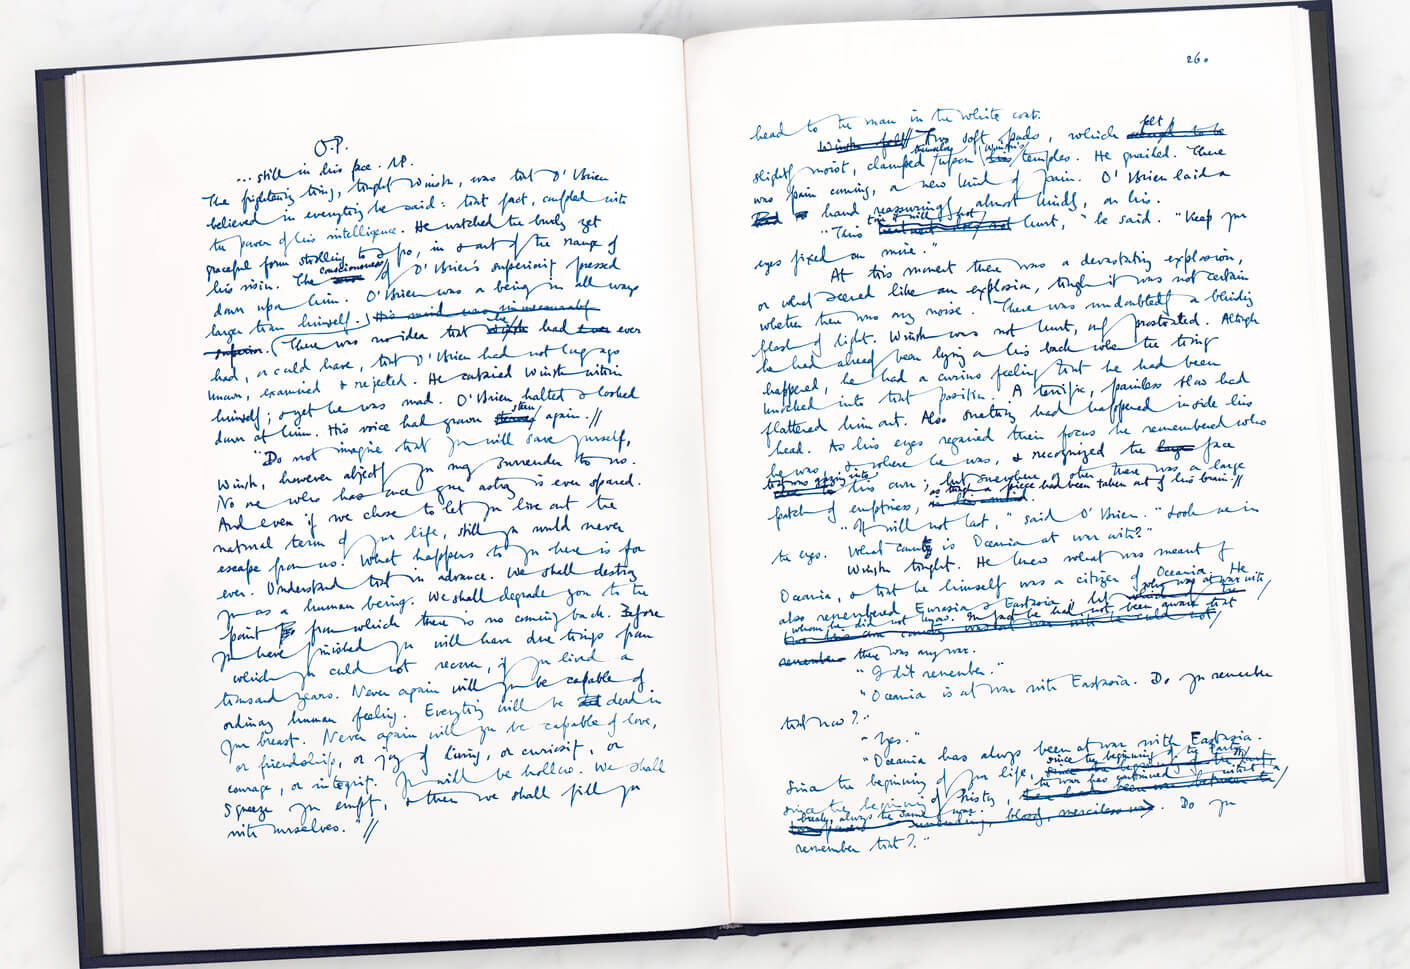 O.P.
... still in his face. NP.
The frightening thing, thought Winston, was that O'Brien
believed in everything he said: that fact, coupled with
the power of his intelligence. He watched the burly yet
graceful form strolling to & fro, in & out of the range of
his vision. The consciousness of O'Brien's superiority pressed
down upon him. O'Brien was a being in all ways
larger than himself. His mind was immeasurably
superior. There was no idea that he had ever ever
had, or could have, that O'Brien had not long ago
known, examined & rejected. He carried Winston within
himself; & yet he was mad. O'Brien halted & looked
down at him. His voice had grown stern again. //
"Do not imagine that you will save yourself,
Winston, however abjectly you may surrender to us.
No one who has once gone astray is ever spared.
And even if we chose to let you live out the
natural term of your life, still you would never
escape from us. What happens to you here is for
ever. Understand that in advance. We shall destroy
you as a human being. We shall degrade you to the
point from which there is no coming back. Before
you have finished you will have done things from
which you could not recover, if you lived a
thousand years. Never again will you be capable of
ordinary human feeling. Everything will be dead in
your breast. Never again will you be capable of love,
or friendship, or joy of living, or curiosity, or
courage, or integrity. You will be hollow. We shall
squeeze you empty, & then we shall fill you
with ourselves. //
260
head to the man in the white coat.
Winston felt // Two soft pads, which felt
slightly moist, clamped themselves upon against his temples. He quailed. There
was pain coming, a new kind of pain. O'Brien laid a
hand reassuringly, almost kindly, on his.
"This time it will not hurt," he said. "Keep your
eyes fixed on mine."
At this moment there was a devastating explosion,
or what seemed like an explosion, though it was not certain
whether there was any noise. There was undoubtedly a blinding
flash of light. Winston was not hurt, only prostrated. Although
he had already been lying on his back when the thing
happened, he had a curious feeling that he had been
knocked into that position. A terrific, painless blow had
flattened him out. Also something had happened inside his
head. As his eyes regained their focus he remembered who
he was, & where he was, & recognized the face
that was gazing into his own; but somewhere or other there was a large
patch of emptiness, as though a piece had been taken out of his brain. //
"It will not last," said O'Brien. "Look me in
the eyes. What country is Oceania at war with?"
Winston thought. He knew what was meant by
Oceania, & that he himself was a citizen of Oceania. He
also remembered Eurasia & Eastasia; but who was at war with
whom he did not know. In fact he had not been aware that
there was any war.
"I don't remember."
"Oceania is at war with Eastasia. Do you remember
that now?"
"Yes."
"Oceania has always been at war with Eastasia.
Since the beginning of your life, since the beginning of the Party,
since the beginning of history, the war has continued without a
break, always the same war. Do you
remember that?"